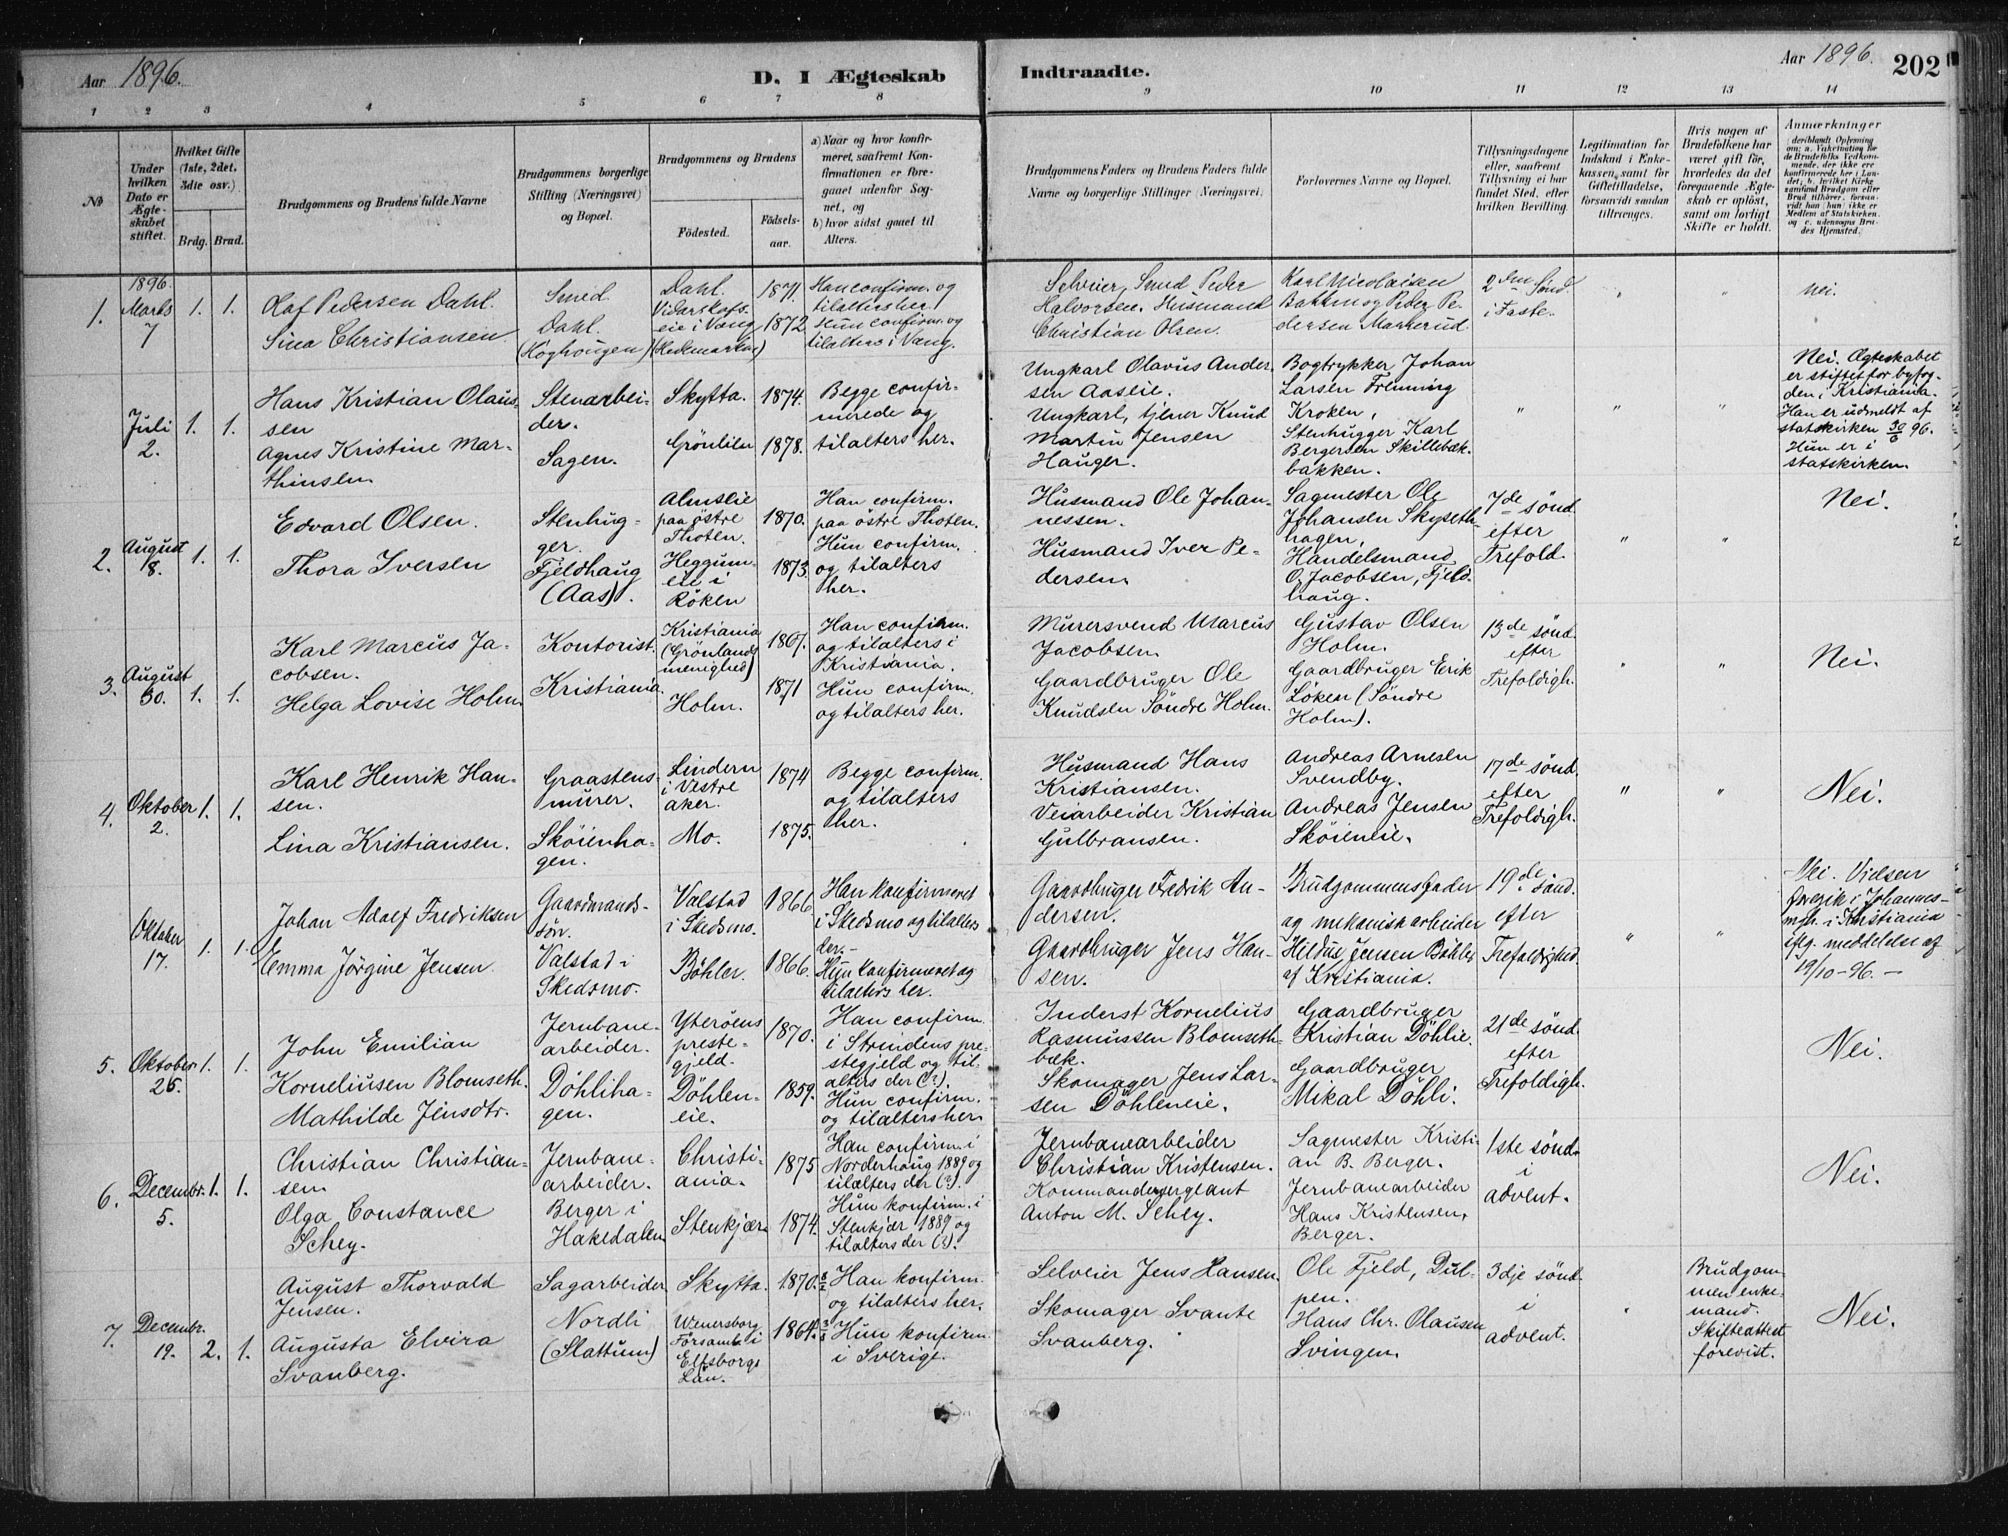 Aar 1896.
D. I Ægteskab
Indtraadte.
Aar 1896.
202
1 2 3 4 5 6 7 8 9 10 11 12 13 14
No
Under hvilken Dato er Ægteskabet stiftet.
Hvilket Gifte (1ste, 2det, 3die osv.)
Brdg. Brud.
Brudgommens og Brudens fulde Navne
Brudgommens borgerlige Stilling (Næringsvei) og Bopæl.
Brudgommens og Brudens
Fødested.
Fødselsaar.
a) Naar og hvor konfirmeret, saafremt Konfirmationen er foregaaet udenfor Sognet, og
b) hvor sidst gaaet til Alters.
Brudgommens Faders og Brudens Faders fulde Navne og borgerlige Stillinger (Næringsvei).
Forlovernes Navne og Bopæl.
Tillysningsdagene eller, saafremt Tillysning ei har fundet Sted, efter hvilken Bevilling.
Legitimation for Indskud i Enkekassen, samt for Giftetilladelse, forsaavidt saadan tiltrænges.
Hvis nogen af Brudefolkene har været gift før, hvorledes da det foregaaende Ægteskab er opløst, samt om lovligt Skifte er holdt.
Anmærkninger
1.
1896. Marts 7
1. 1.
Olaf Pedersen Dahl.
Sina Christiansen
Smed.
Dahl.
(Høghougen)
Dahl.
Vidarskafseie i Vang
(Hedemarken)
1871.
1872
Han confirm. og tilalters her.
Hun confirm. og tilalters i Vang.
Selveier, Smed Peder Halvorsen. Husmand Christian Olsen.
Karl Nicolaisen Bakken og Peder Pedersen Markerud
2den Sønd. i Faste.
" "
nei.
Juli 2.
1. 1.
Hans Kristian Olaussen
Agnes Kristine Marthinsen
Stenarbeider.
Sagen.
Skytta.
Grönlien
1874.
1878.
Begge confirmerede og tilalters her.
Ungkarl Olavus Andersen Aaslie.
Ungkarl, tjener Knud Martin Jensen Hauger.
Bogtrykker Johan Larsen Frenning Kroken,
Stenhugger Karl Bergersen Skillebækbakken.
" " "
Nei. Ægteskabet er stiftet for byfogden i Kristiania. Han er udmeldt af statskirken 30/6 96. Hun er i statskirken.
2.
August 18.
1. 1.
Edvard Olsen.
Thora Iversen
Stenhugger.
Fjeldhaug (Aas).
Almslie paa östre Thoten.
Heggumeie i Röken
1870.
1873.
Han confirm. paa östre Thoten.
Hun confirm. og tilalters her.
Husmand Ole Johannessen.
Husmand Iver Pedersen.
Sagmester Ole Johansen Skysethhagen,
Handelsmand O. Jacobsen, Fjeldhaug.
7de sönd. efter Trefold.
" "
Nei.
3.
August 30.
1. 1.
Karl Marcus Jacobsen.
Helga Lovise Holm
Kontorist.
Kristiania.
Kristiania (Grönlands menighed)
Holm.
1867.
1871
Han confirm. og tilalters i Kristiania.
Hun confirm. og tilalters her.
Murersvend Marcus Jacobsen.
Gaardbruger Ole Knudsen Söndre Holm.
Gustav Olsen Holm.
Gaardbruger Erik Löken (Söndre Holm).
13de sönd. efter Trefoldigh.
" "
Nei.
4.
Oktober 2.
1. 1.
Karl Henrik Hansen.
Lina Kristiansen.
Graastensmurer.
Sköienhagen.
Lindern i Vestre aker.
Mo.
1874
1875.
Begge confirm. og tilalters her.
Husmand Hans Kristiansen.
Veiarbeider Kristian Gulbransen.
Andreas Arnesen Svendby.
Andreas Jensen Sköieneie.
17de sönd. efter Trefoldigh.
" "
Nei.
Oktober 17.
1. 1.
Johan Adolf Fredriksen
Emma Jörgine Jensen.
Gaardmandssön.
Valstad i Skedsmo.
Valstad i Skedsmo.
Böhler.
1866.
1866.
Han konfirmeret i Skedsmo og tilalters der. –
Hun konfirmeret og tilalters her.
Gaardbruger Fredrik Andersen.
Gaardbruger Jens Hansen.
Brudgommens fader og mekanisk arbeider Hildus Jensen Böhler af Kristiania.
19de sönd. efter Trefoldighed
" "
Nei. Vielsen foregik i Johannesmgh. i Kristiania iflg. meddelelse af 19/10-96. –
5.
Oktober 25.
1. 1.
John Emilian Korneliusen Blomseth.
Mathilde Jensdtr.
Jernbanearbeider.
Döhlihagen.
Yteröens prestegjeld.
Döhleneie.
1870.
1859.
Han confirm. i Strindens prestegjeld og tilalters der (?).
Hun confirm. og tilalters her.
Inderst Kornelius Rasmussen Blomsethbæk.
Skomager Jens Larsen Döhleneie.
Gaardbruger Kristian Döhlie.
Gaardbruger Mikal Döhli.
21de sönd. efter Trefoldigh.
Nei.
6.
Decembr. 5.
1. 1.
Christian Christiansen
Olga Constance Schey.
Jernbanearbeider.
Berger i Hakedalen
Christiania.
Stenkjær
1875
1874.
Han confirm. i Norderhoug 1889 og tilalters der (?).
Hun konfirm. i Stenkjær 1889 og tilalters der (?).
Jernbanearbeider Christian Kristensen.
Kommandersergeant Anton M. Schey.
Sagmester Kristian B. Berger.
Jernbanearbeider Hans Kristensen, Berger.
1ste sönd. i advent.
Nei.
7.
Decembr. 19.
2. 1.
August Thorvald Jensen.
Augusta Elvira Svanberg.
Sagarbeider
Nordli (Slattum)
Skytta.
Wenersborg Forsaml. i Elfsborgs Län.
1870.
1864.
Han konfirm. og tilalters her.
Hun konfirm. i Sverige.
Selveier Jens Hansen.
Skomager Svante Svanberg.
Ole Fjeld, Dulpen.
Hans Chr. Olausen Svingen.
3dje sönd. i advent.
"
Brudgommen enkemand. Skifteattest forevist.
Nei.